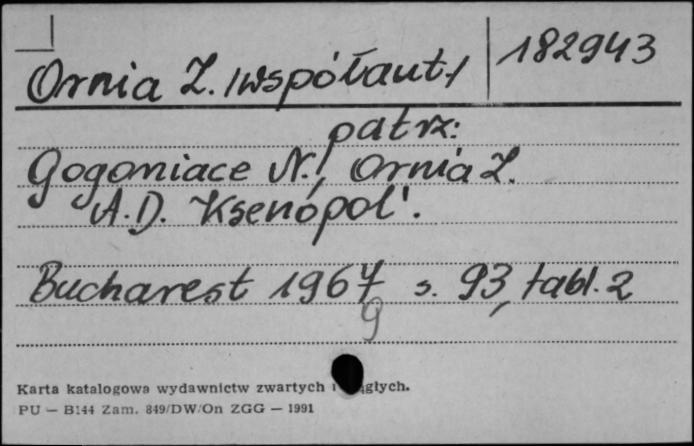 Ornia Z. /współaut./
182943
patrz:
Gogoniace N., Ornia Z.
A.D. Ksenopol'.
Bucharest 1967 s. 93, tabl. 2
9
Karta katalogowa wydawnictw zwartych i
PU — B144 Zam. 849/DW/On ZGG — 1991